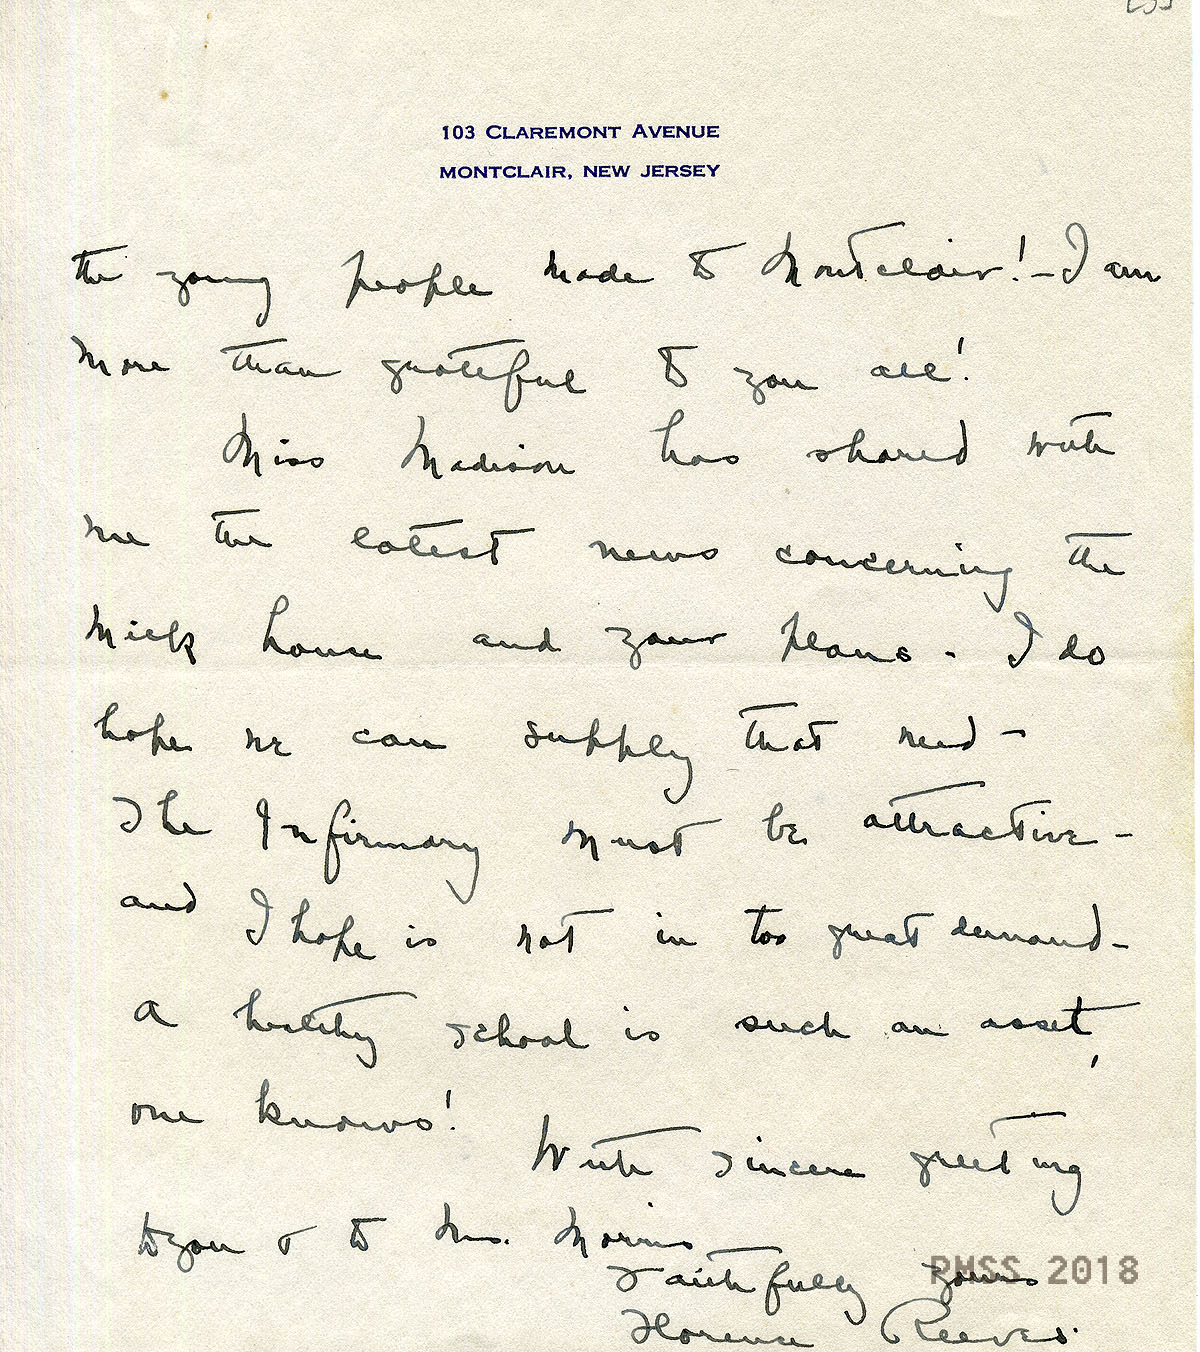 103 CLAREMONT AVENUE
MONTCLAIR, NEW JERSEY
the young people made to Montclair! - I am
more than grateful to you all!
Miss Madison has shared with
me the latest news concerning the
house and your plans - I do
hope we can supply that need -
The Infirmary must be attractive -
and I hope is not in too great demand -
A healthy school is such an asset,
one knows!
With sincere greeting
to you & to Mrs. Morris
Faithfully yours
Florence Reeves.
PMSS 2018